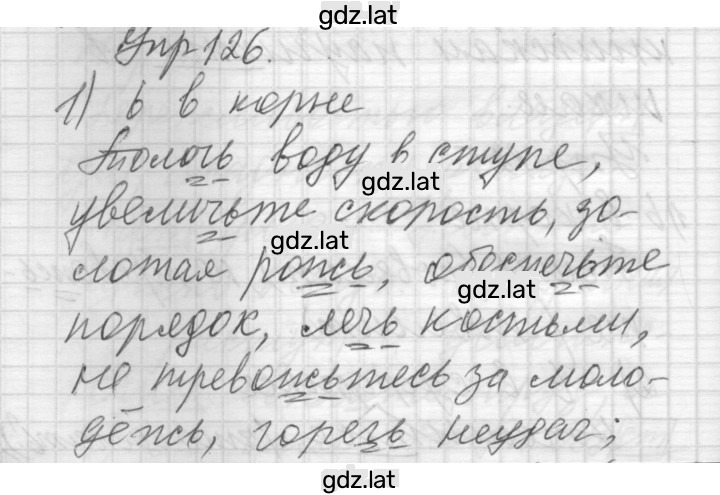 gdz.lat
Упр 126.
1) ь в корне
Толочь воду в ступе,
gdz.lat
увеличьте скорость, зо-
gdz.lat
лотая рожь, обеспечьте
gdz.lat
порядок, лечь костьми,
не тревожьтесь за моло-
дёжь, горечь неудач;
gdz.lat